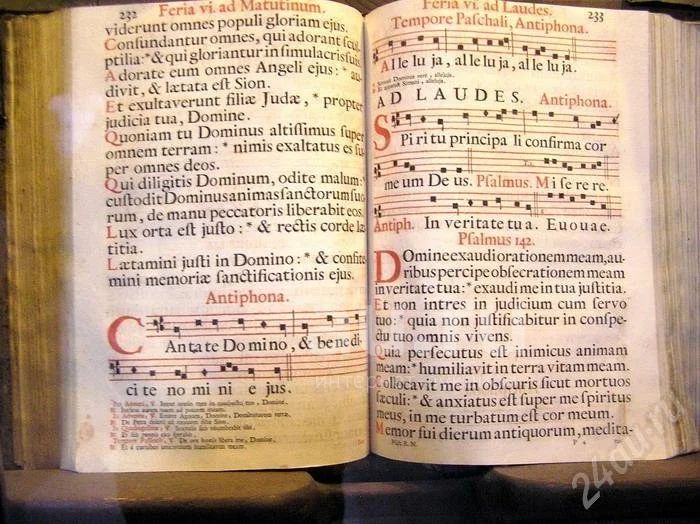 232 Feria vi. ad Matutinum.
viderunt omnes populi gloriam ejus.
Confundantur omnes, qui adorant scul-
ptilia:* & qui gloriantur in simulacris suis
Adorate eum omnes Angeli ejus: * au-
divit, & lætata est Sion.
Et exultaverunt filiæ Judæ, * propter
judicia tua, Domine.
Quoniam tu Dominus altissimus super
omnem terram: * nimis exaltatus es su-
per omnes deos.
Qui diligitis Dominum, odite malum:*
custodit Dominus animas sanctorum suo-
rum, de manu peccatoris liberabit eos.
Lux orta est justo: * & rectis corde læ-
titia.
Lætamini justi in Domino: * & confite-
mini memoriæ sanctificationis ejus.
Antiphona.
CAntate Domino, & benedi-
cite nomini ejus.
Feria vi. ad Laudes. 233
Tempore Paschali, Antiphona.
Alleluja, alleluja, alleluja.
AD LAUDES. Antiphona.
SPiritu principali confirma cor
meum Deus. Psalmus. Miserere.
Antiph. In veritate tua. Euouae.
Psalmus 142.
Domine exaudi orationem meam, au-
ribus percipe obsecrationem meam
in veritate tua:* exaudi me in tua justitia.
Et non intres in judicium cum servo
tuo: * quia non justificabitur in conspe-
ctu tuo omnis vivens.
Quia persecutus est inimicus animam
meam: * humiliavit in terra vitam meam.
Collocavit me in obscuris sicut mortuos
sæculi: * & anxiatus est super me spiritus
meus, in me turbatum est cor meum.
Memor fui dierum antiquorum, medita-
24au.ru